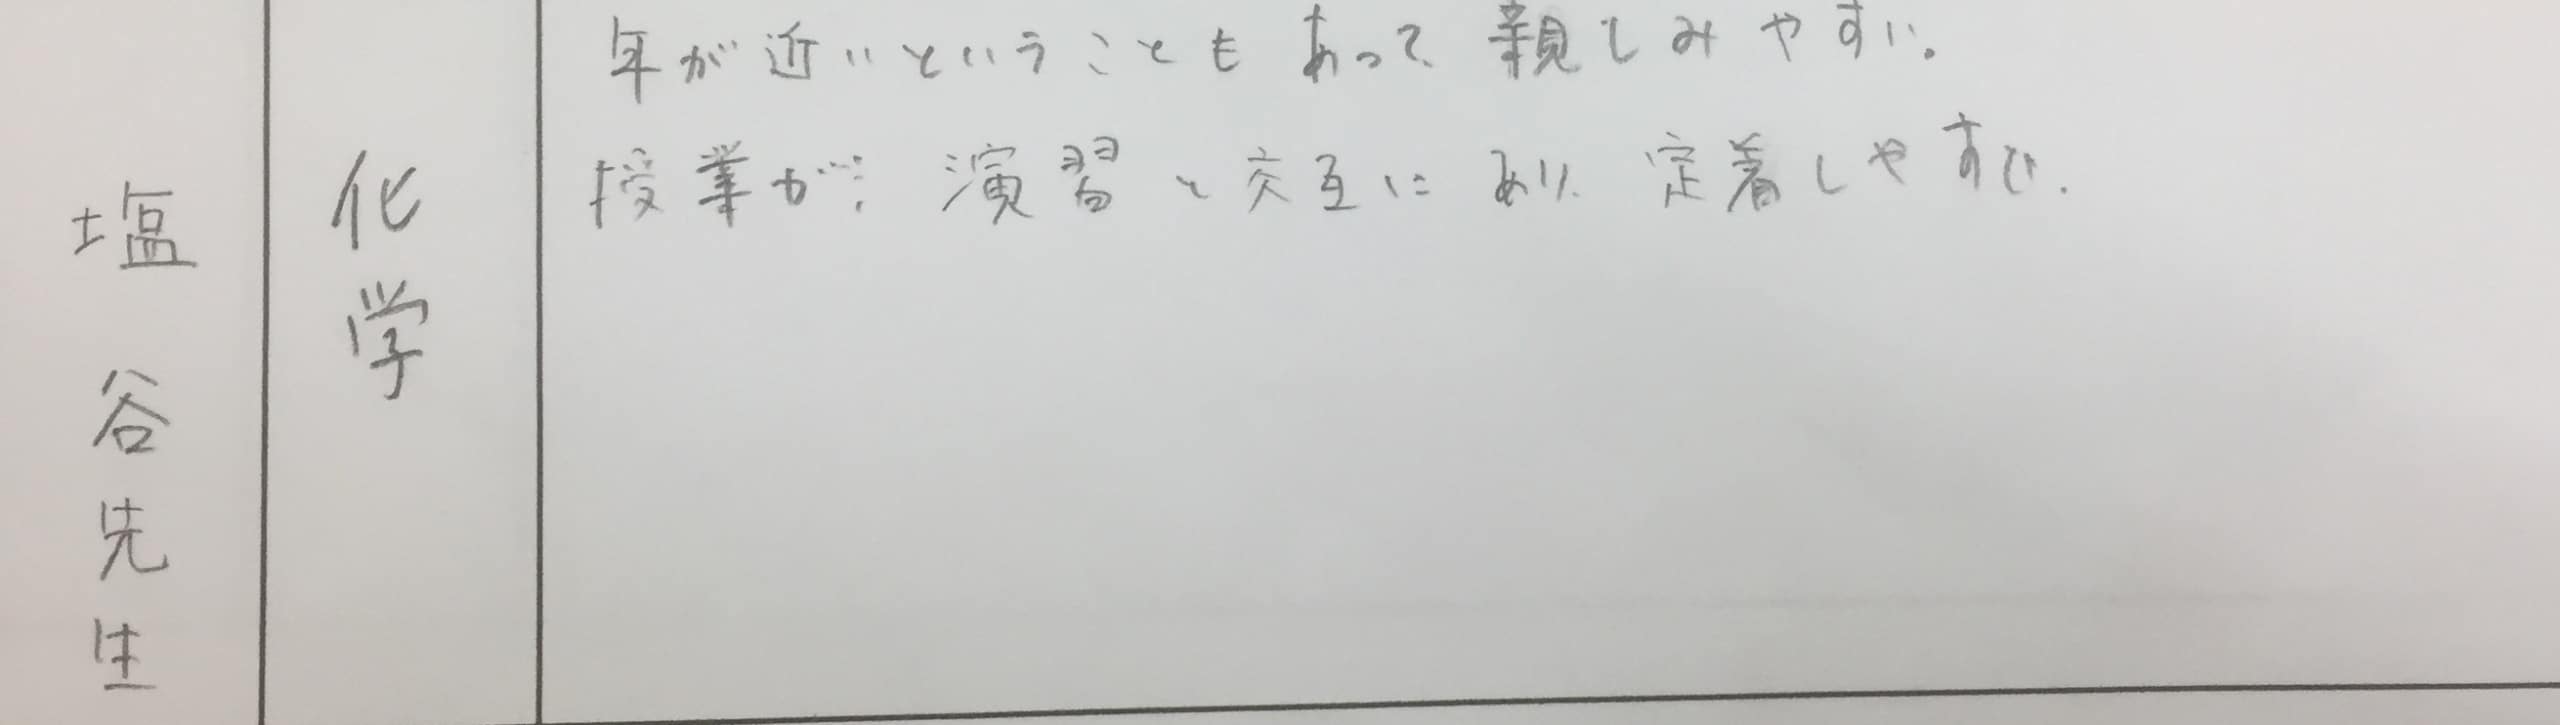 塩谷先生
化学
年が近いということもあって親しみやすい。
授業が演習と交互にあり、定着しやすい.